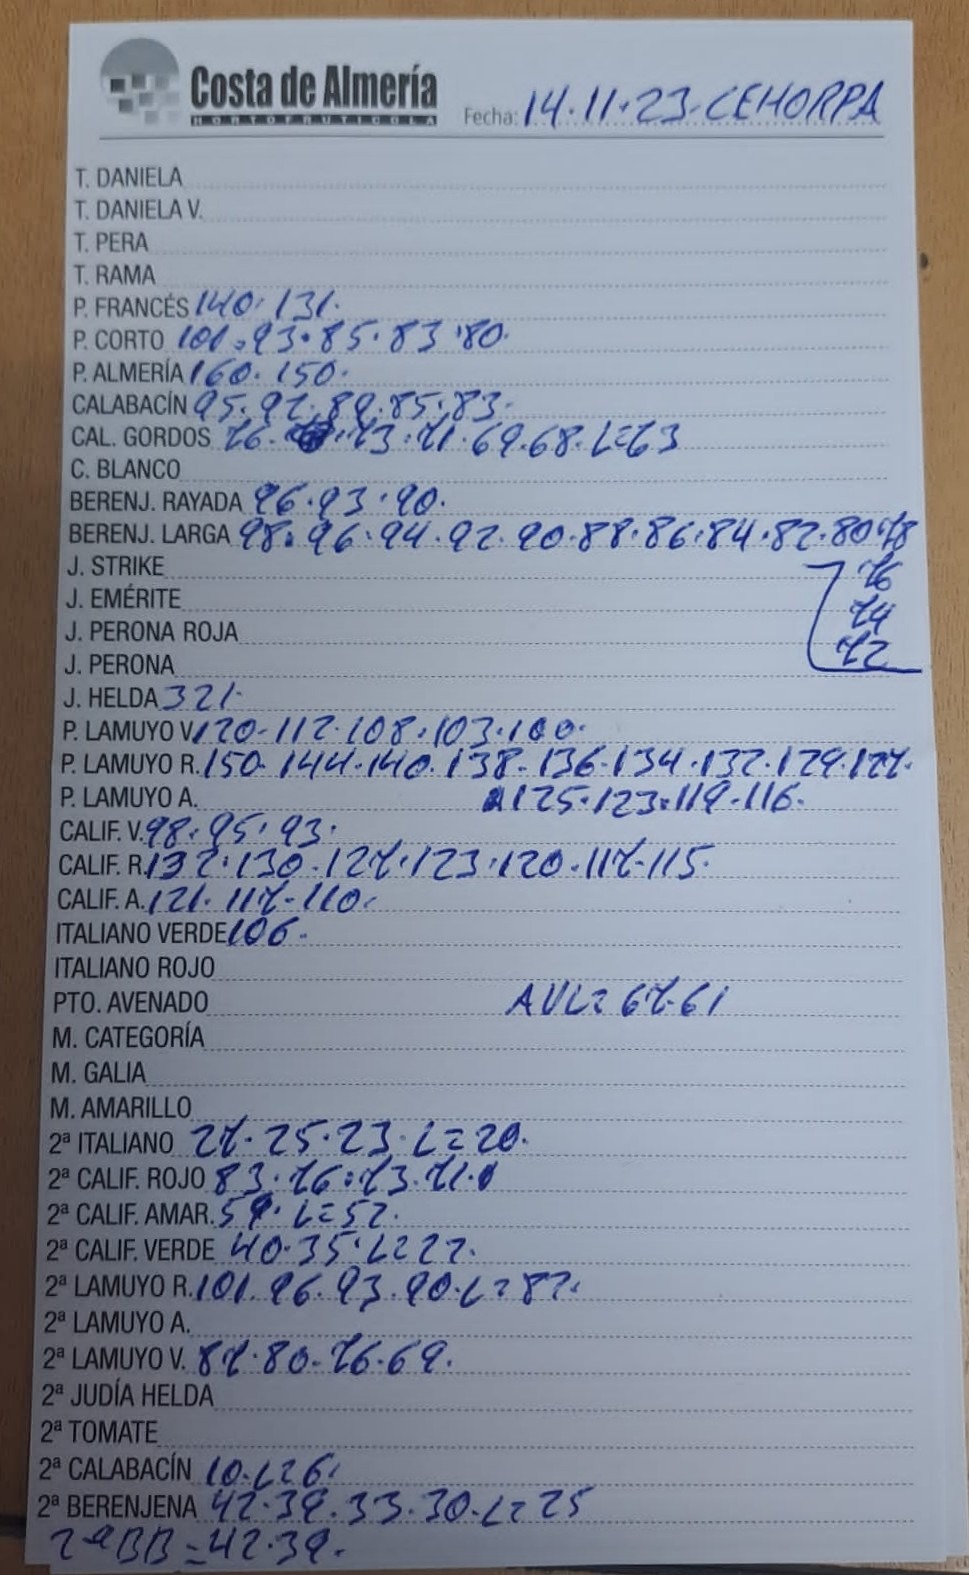 Costa de Almería
HORTOFRUTICOLA
Fecha: 14.11.23. CEHORPA
T. DANIELA
T. DANIELA V.
T. PERA
T. RAMA
P. FRANCÉS 140. 131.
P. CORTO 101.93.85.83.80.
P. ALMERÍA 160. 150.
CALABACÍN 95.92.89.85.83.
CAL. GORDOS 76. 73.71.69.68.L=63
C. BLANCO
BERENJ. RAYADA 96.93.90.
BERENJ. LARGA 98.96.94.92.90.88.86.84.82.80.78
J. STRIKE 76
J. EMÉRITE 74
J. PERONA ROJA
J. PERONA 72
J. HELDA 321.
P. LAMUYO V. 120-112.108.103.100.
P. LAMUYO R. 150-144.140.138-136.134.132.129.127.
P. LAMUYO A. 125.123.119-116.
CALIF. V. 98.95.93.
CALIF. R. 132.130.127.123.120.117-115.
CALIF. A. 121.117-110.
ITALIANO VERDE 106.
ITALIANO ROJO
PTO. AVENADO AVL= 67-61
M. CATEGORÍA
M. GALIA
M. AMARILLO
2ª ITALIANO 27.25.23.L=20.
2ª CALIF. ROJO 83.76.73.71.
2ª CALIF. AMAR. L=52.
2ª CALIF. VERDE 40.35.L=27.
2ª LAMUYO R. 101.96.93.90.L=87.
2ª LAMUYO A.
2ª LAMUYO V. 87.80-76.69.
2ª JUDÍA HELDA
2ª TOMATE
2ª CALABACÍN 10.L=6.
2ª BERENJENA 42.39.33.30.L=25
2ª BB=42.39.